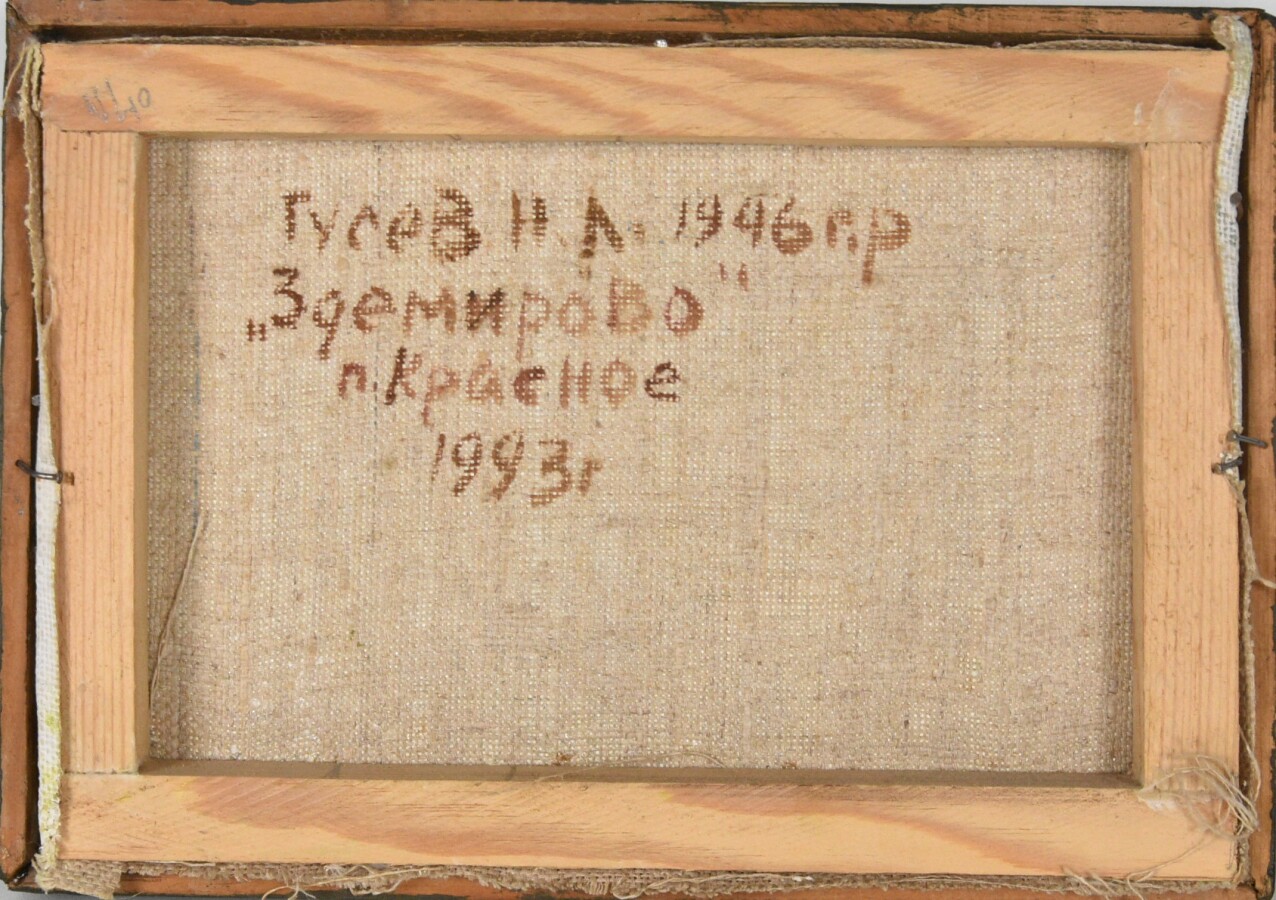 Гусев Н.А. 1946г.р
„Здемирово"
п.Красное
1993г